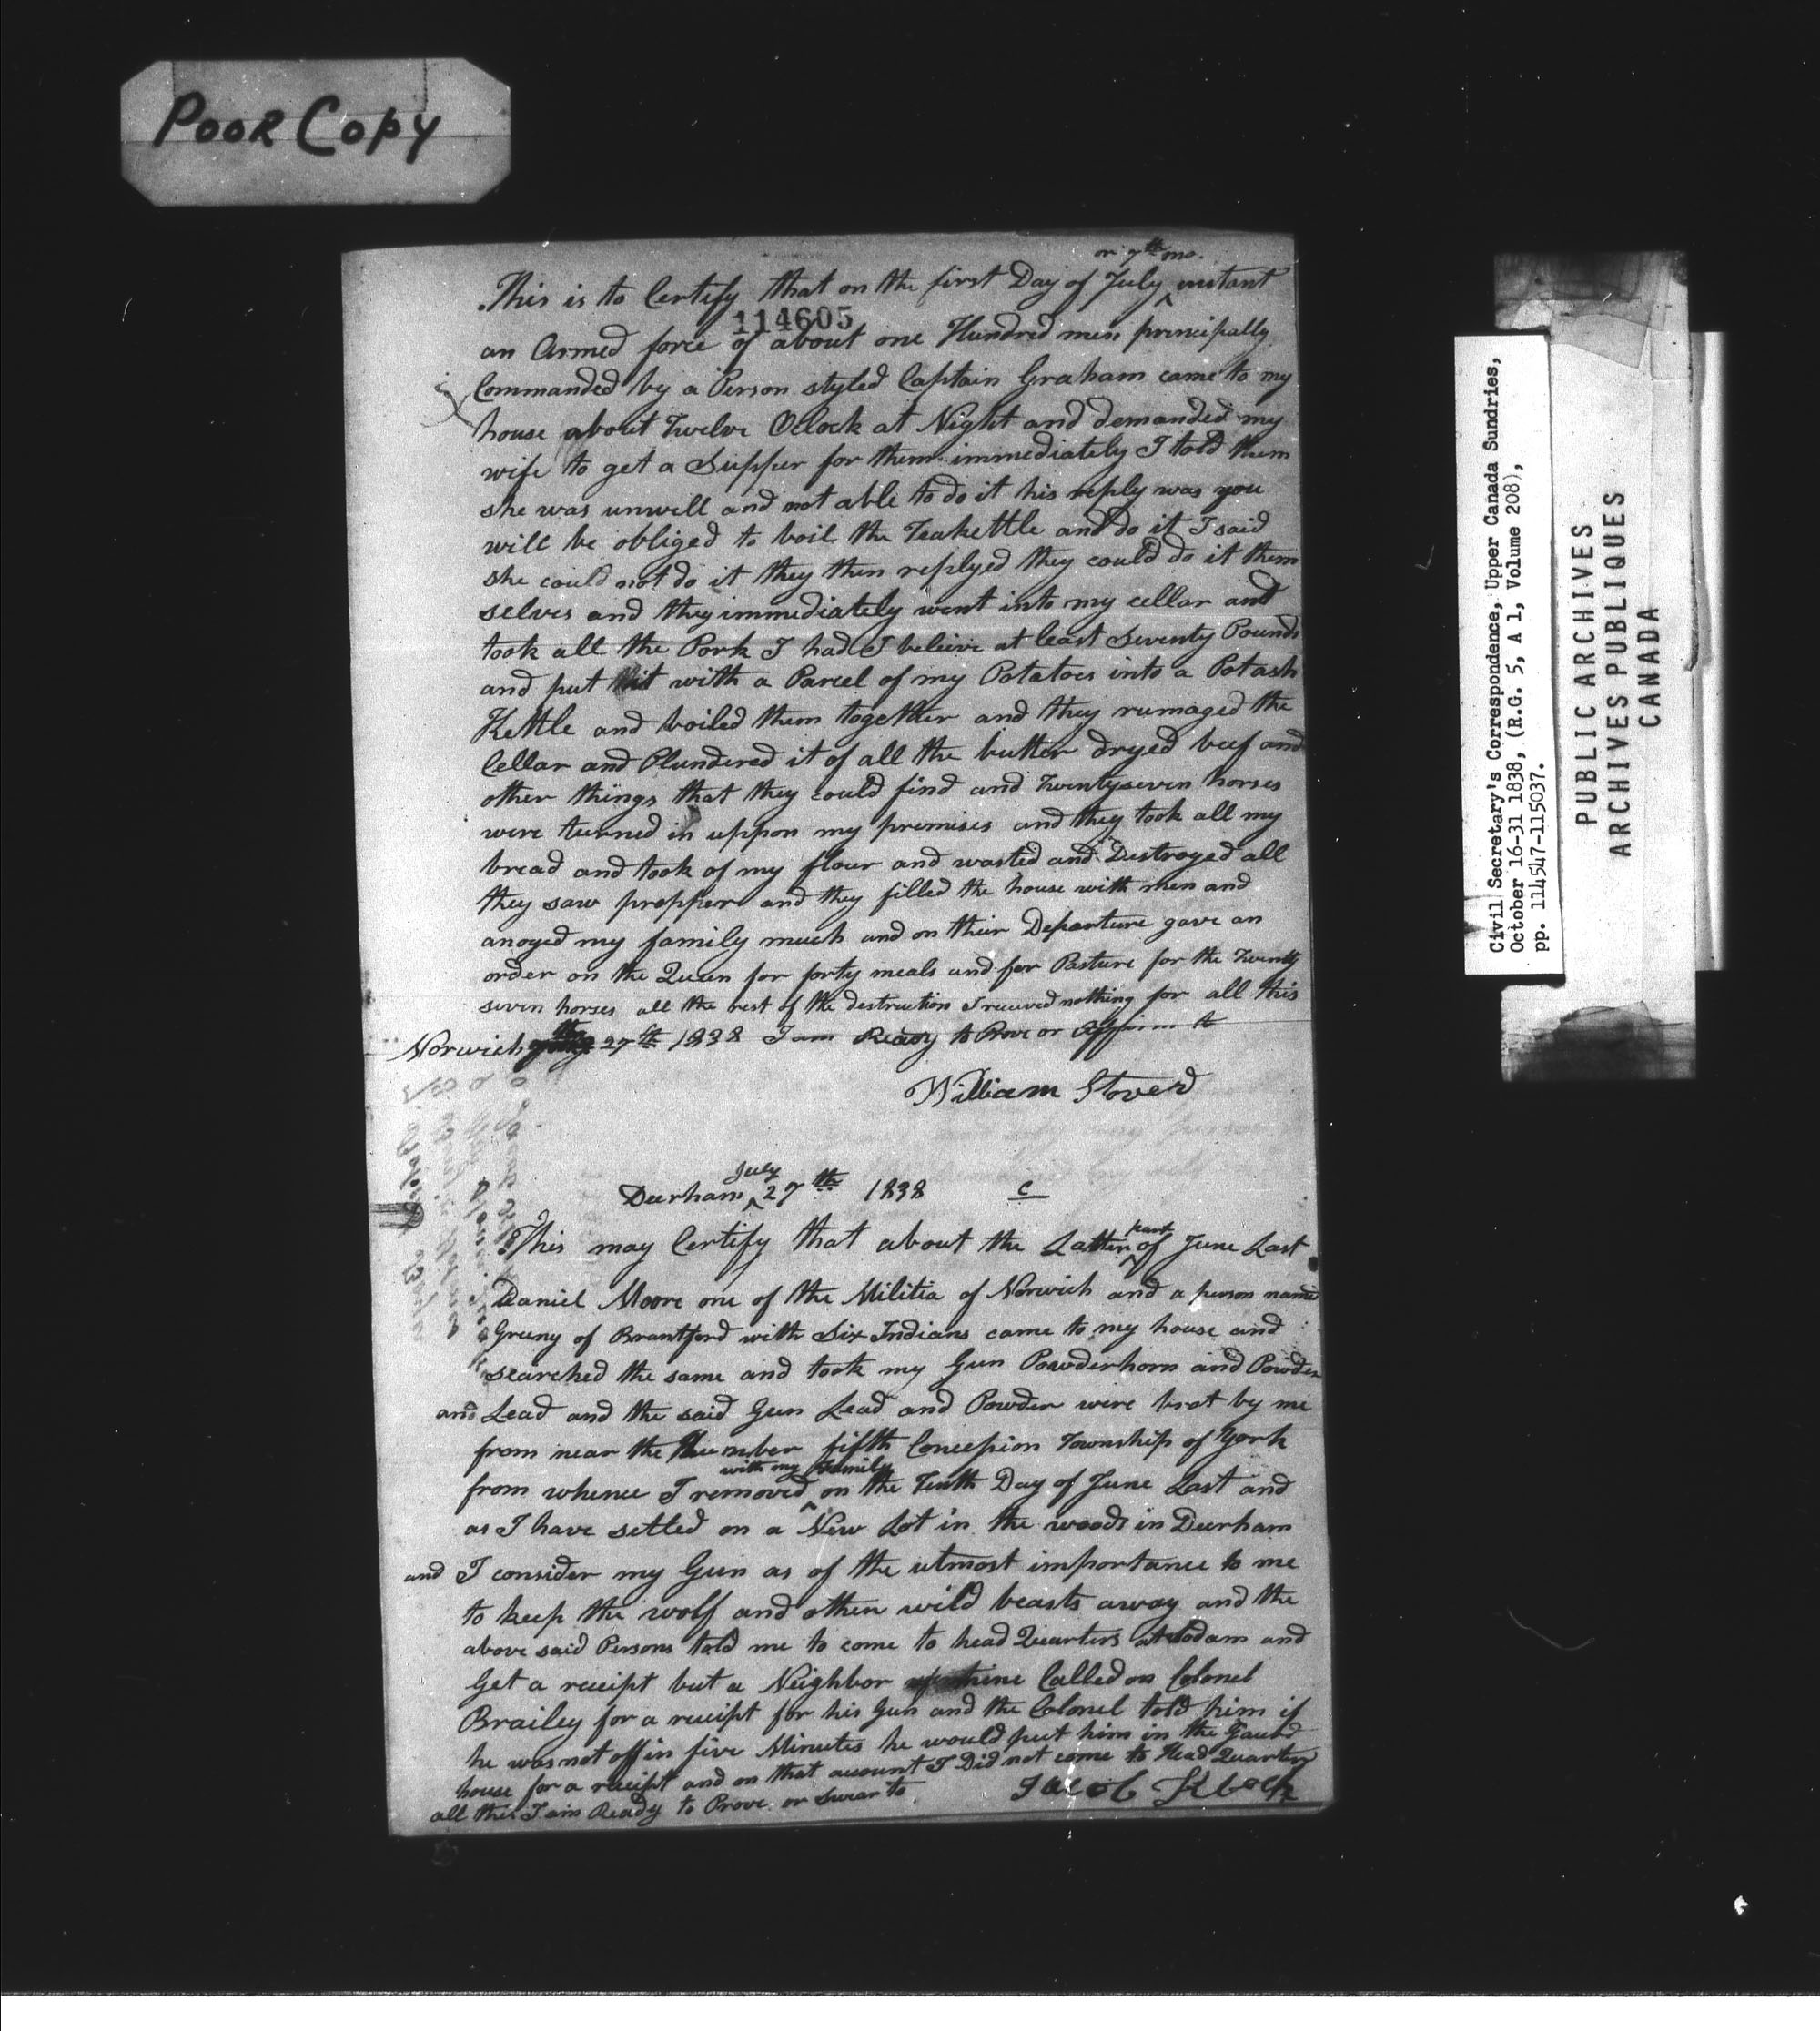 POOR COPY
or 7th mo.
This is to Certify that on the first Day of July ^ instant
114605
an Armed force of about one Hundred men principally
Commanded by a Person styled Captain Graham came to my
house about Twelve Oclock at Night and demanded my
wife to get a Supper for them immediately I told them
she was unwell and not able to do it his reply was you
will be obliged to boil the Teakettle and do it I said
she could not do it they then replyed they could do it them
selves and they immediately went into my cellar and
took all the Pork I had I beleive at least Seventy Pounds
and put it with a Parcel of my Potatoes into a Potash
Kettle and boiled them together and they rumaged the
Cellar and Plundered it of all the butter dryed beef and
other things that they could find and Twentyseven horses
were turned in uppon my premises and they took all my
bread and took of my flour and wasted and Destroyed all
they saw propper and they filled the house with men and
anoyed my family much and on their Departure gave an
order on the Queen for forty meals and for Pasture for the Twenty
seven horses all the rest of the destruction I received nothing for all this
Norwich 27th 1838 I am Ready to Prove or Affirm to
William Stover
July
Durham ^ 27th 1838 C
part
This may Certify that about the Latter ^ of June Last
Daniel Moore one of the Militia of Norwich and a person named
Greeny of Brantford with Six Indians came to my house and
searched the same and took my Gun Powderhorn and Powder
and Lead and the said Gun Lead and Powder were brot by me
from near the Humber fifth Concession Township of York
with my family
from whence I removed ^ on the Tenth Day of June Last and
as I have setled on a New Lot in the woods in Durham
and I consider my Gun as of the utmost importance to me
to keep the wolf and other wild beasts away and the
above said Persons told me to come to head Quarters at Sodam and
Get a receipt but a Neighbor of mine Called on Colonel
Brailey for a receipt for his Gun and the Colonel told him if
he was not off in five Minutes he would put him in the Gaurd
house for a receipt and on that account I Did not come to Head Quarters
all this I am Ready to Prove or Swear to
Jacob
Civil Secretary's Correspondence, Upper Canada Sundries,
October 16-31 1838, (R.G. 5, A 1, Volume 208),
pp. 114547-115037.
PUBLIC ARCHIVES
ARCHIVES PUBLIQUES
CANADA